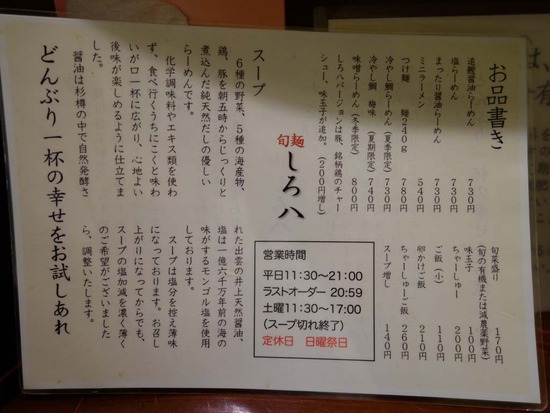 お品書き
追鰹醤油らーめん 730円
塩らーめん 730円
まったり醤油らーめん 730円
ミニラーメン 540円
つけ麺 麺240g 780円
冷やし鯛らーめん(夏季限定) 730円
冷やし鯛 梅味(夏期限定) 740円
味噌らーめん(冬季限定) 800円
しろ八バージョンは豚、銘柄鶏のチャー
シュー、味玉子が追加。(200円増し)
旬菜盛り 170円
(旬の有機または減農薬野菜)
味玉子 100円
ちゃーしゅー 200円
ご飯(小) 110円
卵かけご飯 210円
ちゃーしゅーご飯 260円
スープ増し 140円
旬麺 しろ八
営業時間
平日11:30~21:00
ラストオーダー 20:59
土曜11:30~17:00
(スープ切れ終了)
定休日 日曜祭日
スープ
6種の野菜、5種の海産物、
鶏、豚を朝五時からじっくりと
煮込んだ純天然だしの優しい
らーめんです。
化学調味料やエキス類を使わ
ず、食べ行くうちにこくと味わ
いが口一杯に広がり、心地よい
後味が楽しめるように仕立てま
した。
醤油は杉樽の中で自然発酵さ
れた出雲の井上天然醤油、
塩は一億六千万年前の海の
味がするモンゴル塩を使用
しております。
スープは塩分を控え薄味
になっております。お召し
上がりになってからでも、
スープの塩加減を濃く薄く
のご希望がございました
ら、調整いたします。
どんぶり一杯の幸せをお試しあれ